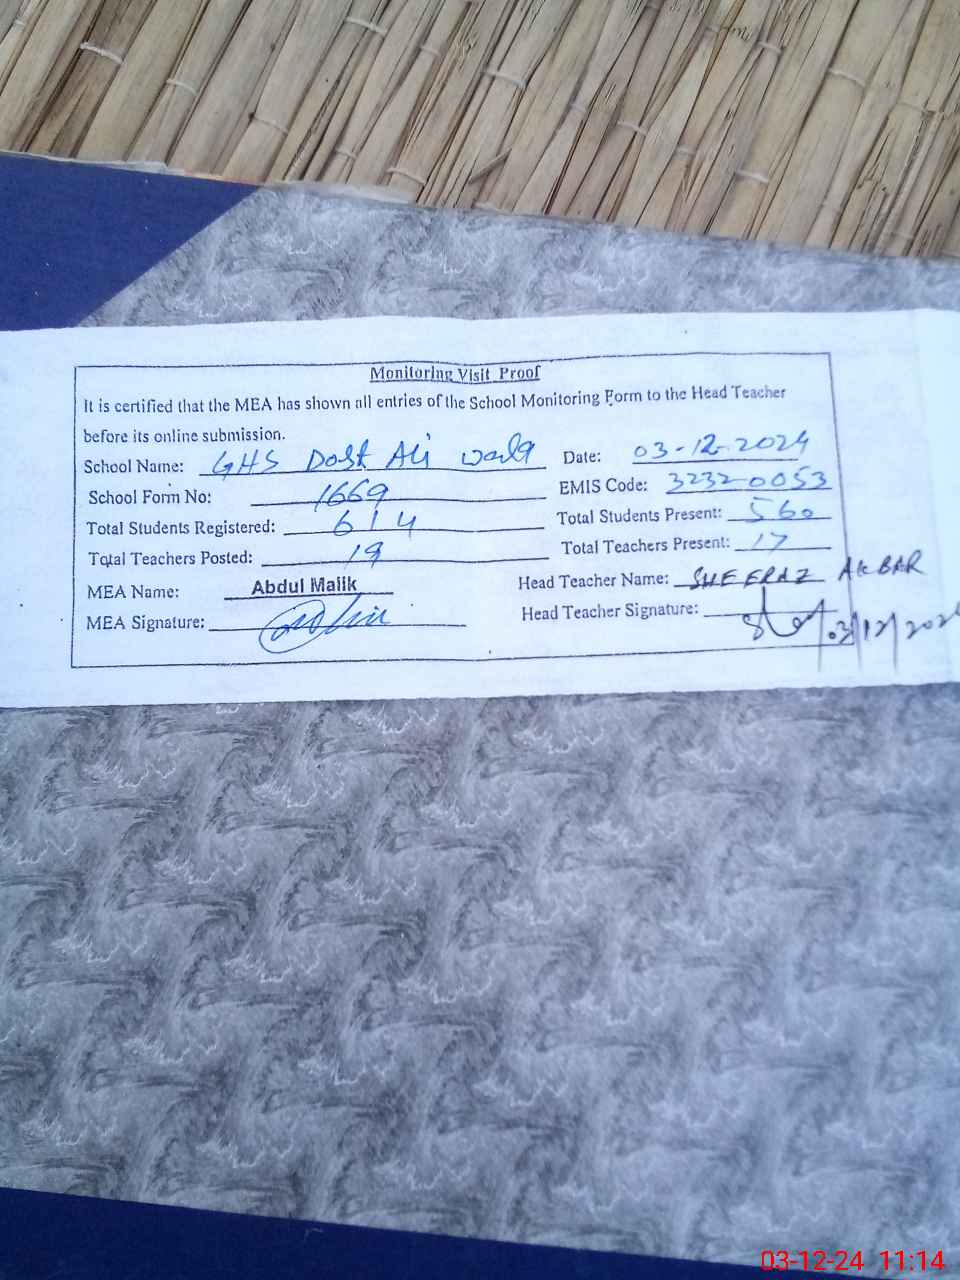 Monitoring Visit Proof
It is certified that the MEA has shown all entries of the School Monitoring Form to the Head Teacher
before its online submission.
School Name: GHS Dost Ali Wala Date: 03-12-2024
School Form No: 1669 EMIS Code: 32320053
Total Students Registered: 614 Total Students Present: 560
Total Teachers Posted: 19 Total Teachers Present: 17
MEA Name: Abdul Malik Head Teacher Name: SHEERAZ AKBAR
MEA Signature: Head Teacher Signature:
03/12/202
03-12-24 11:14